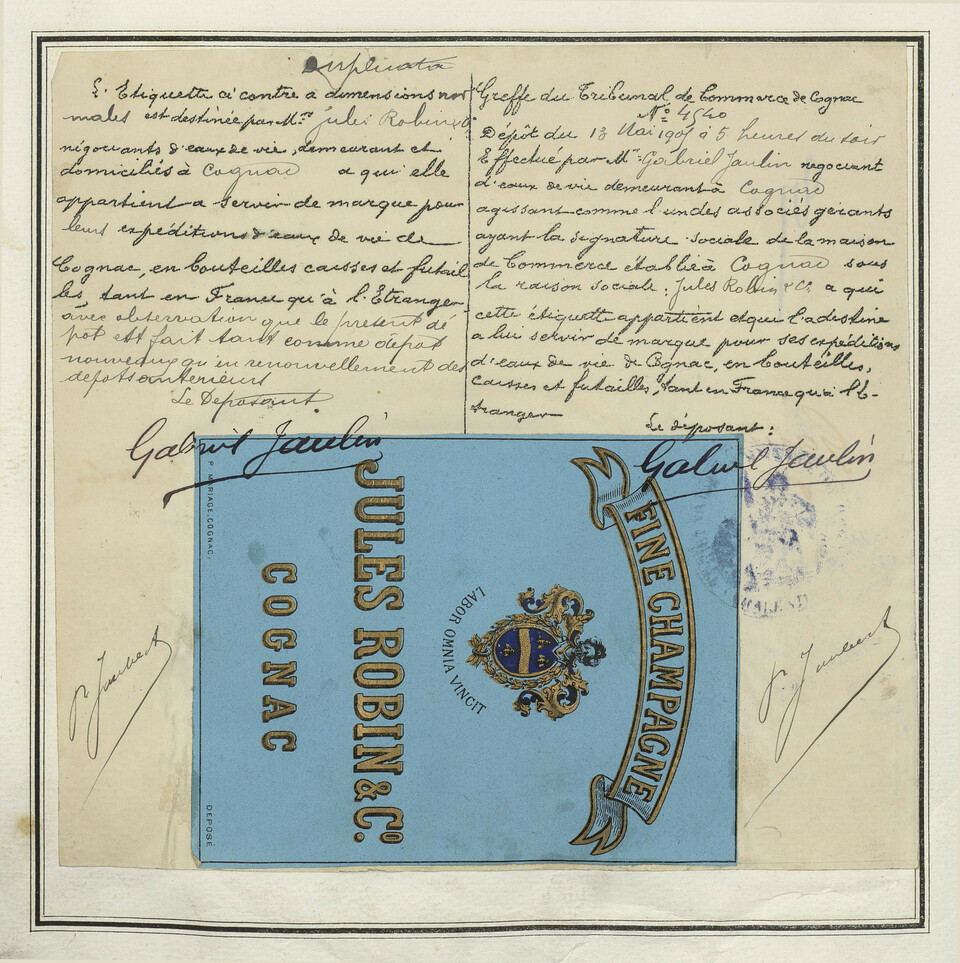 Duplicata
L'Etiquette ci contre a dimensions nor
males est destinée par Mrs Jules Robin & Co
négociants d'eaux de vie, demeurant et
domiciliés à Cognac a qui elle
appartient a servir de marque pour
leurs expéditions d'eaux de vie de
Cognac, en bouteilles caisses et futail
les, tant en France qu'à l'Etranger
avec observation que le present dé
pot est fait tant comme depot
nouveau qu'en renouvellement des
depots anterieurs
Le Deposant
Gabriel Jaulin
Greffe du Tribunal de Commerce de Cognac
No 4540
Dépôt du 13 Mai 190 à 5 heures du soir
Effectué par Mr Gabriel Jaulin negociant
d'eaux de vie demeurant à Cognac
agissant comme l'un des associés gérants
ayant la signature sociale de la maison
de Commerce établie à Cognac sous
la raison sociale: Jules Robin & Co a qui
cette étiquette appartient et qui l'a destine
a lui servir de marque pour ses expéditions
d'eaux de vie de Cognac, en bouteilles,
caisses et futailles, tant en France qu'à l'E-
tranger
Le déposant:
Gabriel Jaulin
FINE CHAMPAGNE
LABOR OMNIA VINCIT
JULES ROBIN & CO.
COGNAC
P. MARIAGE, COGNAC.
DÉPOSÉ